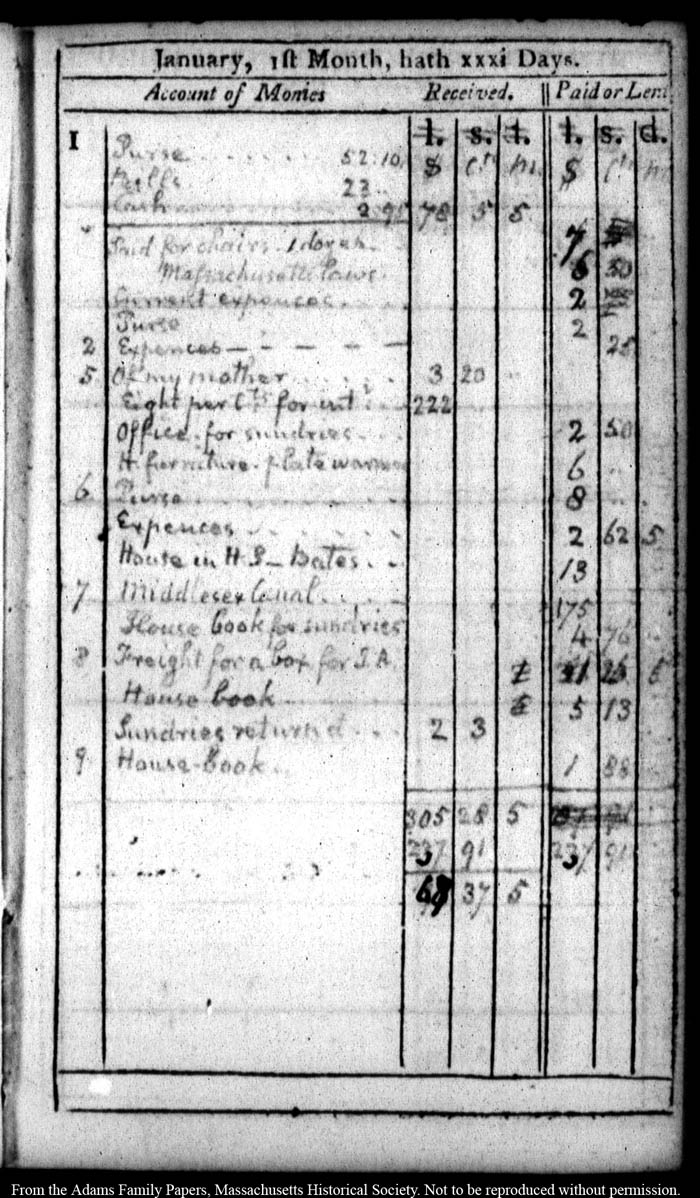 January, 1st Month, hath xxxi Days.
Account of Monies Received. Paid or Lent
l. s. d. l. s. d.
1 Purse 52.10 $ Cts m. $ Cts m
Bills 23
Cash 2.95 78 5 5
Paid for chairs 1 dozen 7
Massachusetts Laws 6 50
Current expences 2
Purse 2
2 Expences 25
5 Of my mother 3 20
Eight per Cts for int 222
Office for sundries 2 50
H. furniture. plate warmer 6
6 Purse 8
Expences 2 62 5
House in H.S. Bates 13
7 Middlesex Canal 175
House book for sundries 4 76
8 Freight for a box for J.A.
House book 5 13
Sundries return'd 2 3
9 House-Book 1 88
305 28 5
237 91 237 91
37 5
From the Adams Family Papers, Massachusetts Historical Society. Not to be reproduced without permission.